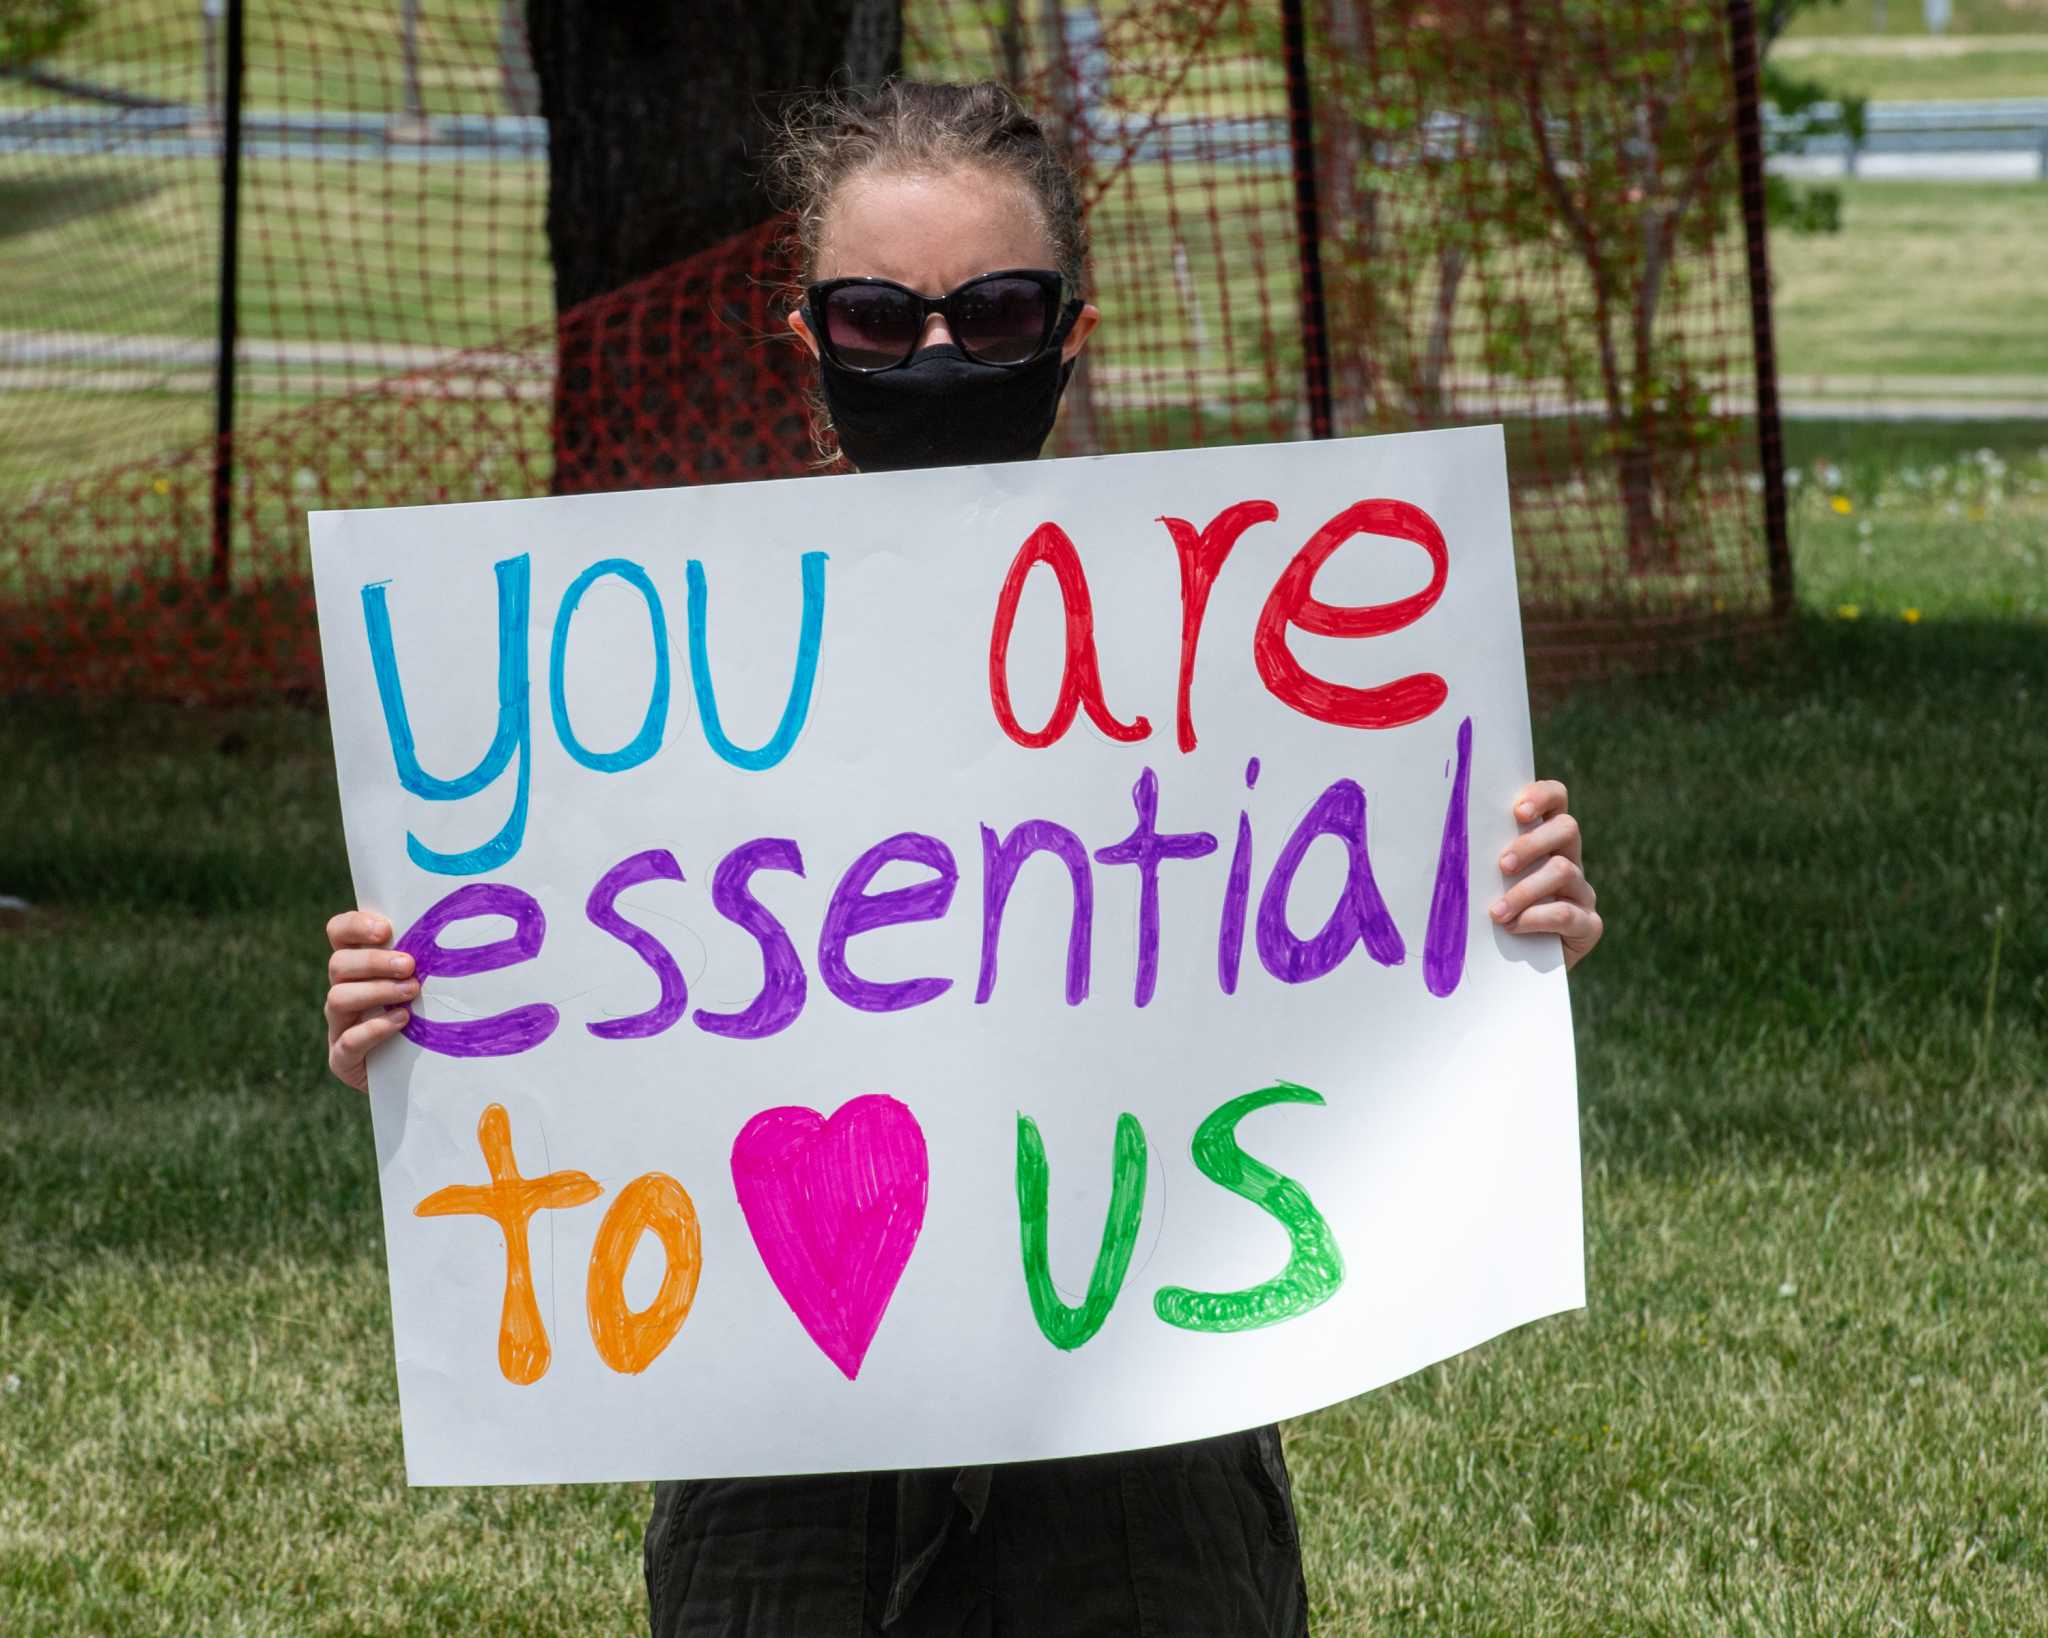 you are
essential
to ♥ us